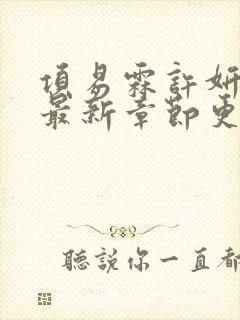 項易霖許妍
最新章節更
聽說你一直都